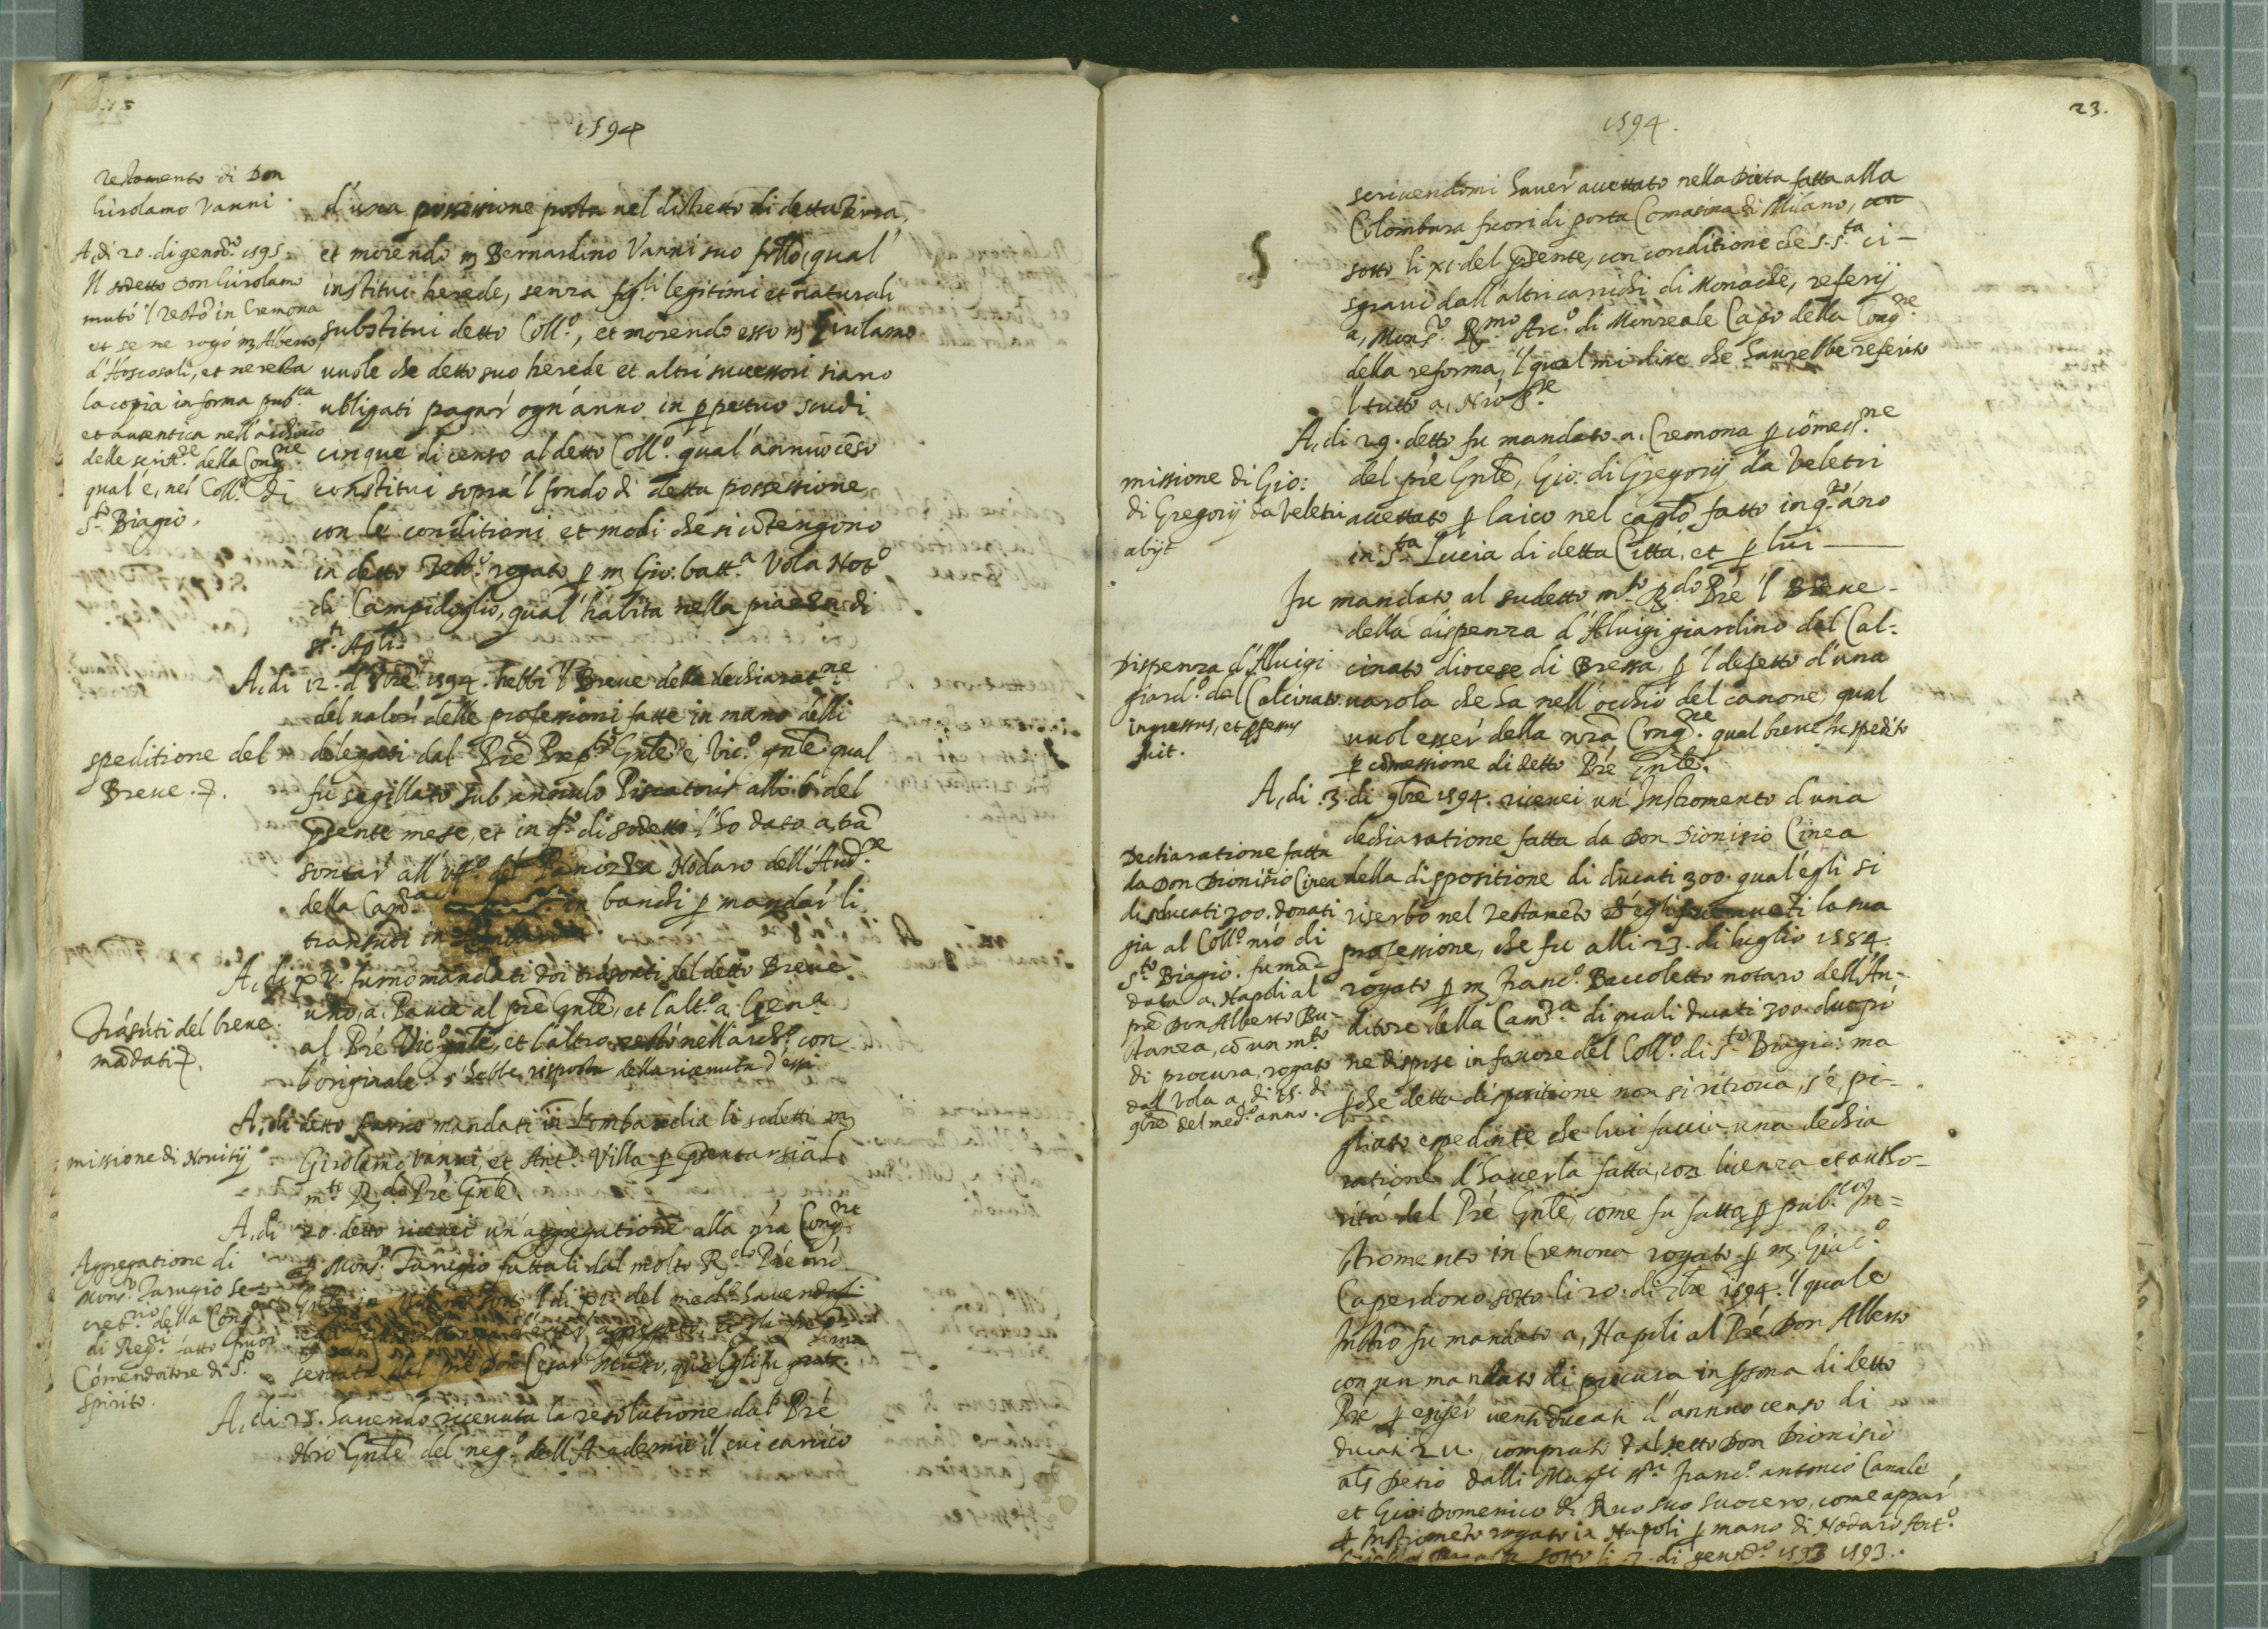 1594
Testamento di Don
Girolamo Vanni.
A, di 20. di genn.ro 1595
Il sodetto Don Girolamo
mutò 'l testo in Cremona
et se ne rogò m Alberto
et ne resta
la copia in forma pub.ca
et autentica nell'archivio
delle scritt.re della Cong.ne
qual'è, nel Coll.o di
S.to Biagio.
d'una possessione posta nel distretto di detta Terra,
et morendo m Bernardino Vanni suo frllo, qual'
instituì herede, senza figli legitimi et naturali
substituì detto Coll.o, et morendo esso m Girolamo
vuole che detto suo herede et altri successori siano
ubligati pagar' ogn'anno in ppetuo scudi
cinque di censo al detto Coll.o qual'annuo ceso
constituì sopra 'l fondo di detta possessione
con le conditioni et modi che si cōtengono
in detto Test.o rogato p m Gio: batt.a Vola Not.o
di Campidoglio, qual' habita nella piazza di
st.i Apli.
A, di 12. d'8bre 1594. hebbi 'l Breve della dechiarat.ne
del valor' delle professioni fatte in mano delli
delegati dal Pre Prep.to Gnle è, Vic.o gnle qual
fu sigillato sub anulo Piscatoris alli 6. del
psente mese, et in q.o di sodetto l'ho dato a, trā
sontar' all'uff.o del Panizza Nodaro dell'Aud.re
della Cam.ra in banchi p mandar' li
transuti in
speditione del
Breve.
A, di xv. furno mandati doi trāsonti del detto Breve
uno, a, Pavia al pre Gnle, et l'alt.o a, Gen.a
al Pre Vic.o gnle, et l'altro restò nell'arch.o con
l'originale. s'hebbe risposta della ricevuta d'essi
Trāsūti del breve
mādati
A, di detto furno mandati in Lombardia li sodetti m
Girolamo Vanni, et Ant.o Villa p psentarsi al
m.to R.do Pre Gnle.
missione di Novitij
A, di 20. detto ricevei un'aggregatione alla nrā Cong.ne
p Mons.r Tarugio fattali dal molto R.do Pre nrō
Gnle in sotto 'l di xi. del med.o havendoli
aggregato, et gli fu pre
sentata dal pre Don Cesar qual gli fu grat.ma
Aggregatione di
Mons.r Tarugio Se=
cret.rio della Cong.ne
di Reg.ri
Cōmendatore di S.to
Spirito.
A, di 25. havendo ricevuta la resolutione dal Pre
Nrō Gnle del neg.o dell'Academie il cui carico
23.
1594.
scrivendomi haver' accettato nella Dieta fatta alla
Colombara fuori di porta Comasina di Milano, con
sotto li xi. del psente, con conditione che S. S.ta ci-
sgravi dall'altri carichi di Monache, referij
a, Mons.r R.mo Arc.o di Monreale Capo della Cong.ne
della reforma, 'l qual mi disse che haurebbe referito
'l tutto a, Nrō S.re
A, di 29. detto fu mandato a. Cremona p cōmess.ne
del pre Gnle, Gio: di Gregorij da Veletri
accettato p laico nel caplo fatto in q.to āno
in S.ta Lucia di detta Città, et p lui
missione di Gio:
di Gregorij da Veletri
abijt
Fu mandato al sudetto m.to R.do Pre 'l Breve
della dispenza d'Aluigi giardino dal Cal-
cinato diocese di Bressa, p 'l defetto d'una
varola che ha nell'occhio del canone, qual
vuol esser' della nrā Cong.ne qual breve fu spedito
p cōmessione di detto Pre Gnle.
Dispenza d'Aluigi
giard.o dal Calcinato.
ingressus, et pfessus
fuit.
A, di .3. di 9bre 1594. ricevei un'Instromento d'una
dechiaratione fatta da Don Dionisio Cinea
della dispositione di ducati 300. qual'egli si
riserbò nel Testamēto la sua
professione, che fu alli 23. di luglio 1584.
rogato p m Franc.o Baccoletto notaro dell'Au-
ditore della Cam.ra di quali ducati 300. due più
ne dispose in favore del Coll.o di S.to Biagio: ma
pche detta dispositione non si ritrova, s'è, pi-
gliato espediente che lui faccia una dechia
ratione d'haverla fatta, con licenza et autho-
rità del Pre Gnle, come fu fatta p pub.co In=
stromento in Cremona rogato p m. Giac.o
Caperdono sotto li 20. di 7bre 1594. 'l quale
Instro fu mandato a, Napoli al Pre Don Alberto
con un mandato di procura in psona di detto
Pre p esiger' venti ducati d'annuo censo di
ducati comprati dal detto Don Dionisio
als Detio dalli Mag.ci ss.ri Franc.o antonio Canale
et Gio: Domenico di Ruo suo suocero, come appar'
p Instromēto rogato in Napoli p mano di Nodaro Ant.o
sotto li 7. di genn.ro 1593 1593.
Dechiaratione fatta
da Don Dionisio Cinea
di ducati 300. donati
già al Coll.o nrō di
S.to Biagio. fu mā=
data a, Napoli al
pre Don Alberto Bu-
stanza, cō un m.to
di procura, rogato
dal Vola a, di 15. di
9bre del med.o anno.